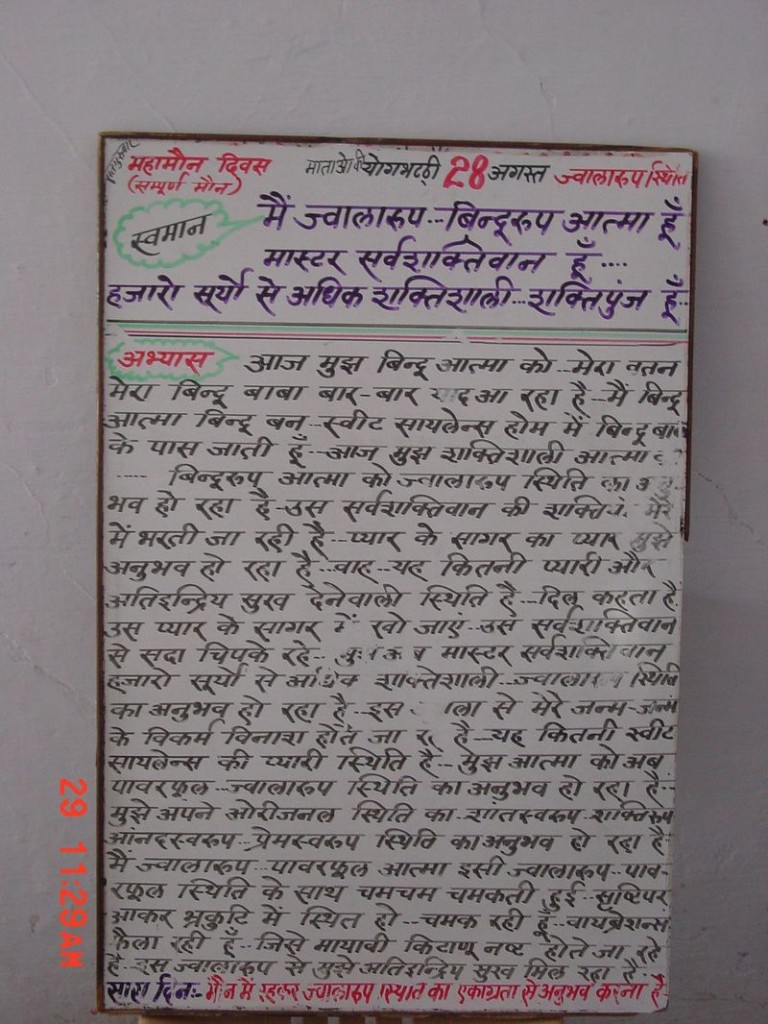 महामौन दिवस
(सम्पूर्ण मौन)
माताओ की योगभट्ठी 28 अगस्त ज्वालारुप स्थिति
स्वमान
मैं ज्वालारुप...बिन्दूरुप आत्मा हूँ
मास्टर सर्वशक्तिवान हूँ....
हजारो सूर्यो से अधिक शक्तिशाली...शक्तिपुंज हूँ..
अभ्यास आज मुझ बिन्दू आत्मा को...मेरा वतन
मेरा बिन्दू बाबा बार-बार याद आ रहा है...मैं बिन्दू
आत्मा बिन्दू बन...स्वीट सायलेन्स होम में बिन्दू बाबा
के पास जाती हूँ...आज मुझ शक्तिशाली आत्मा
..... बिन्दूरुप आत्मा को ज्वालारुप स्थिति का
भव हो रहा है-उस सर्वशक्तिवान की शक्तियां मेरे
में भरती जा रही है...प्यार के सागर का प्यार मुझे
अनुभव हो रहा है...वाह...यह कितनी प्यारी और
अतिइन्द्रिय सुख देनेवाली स्थिति है...दिल कहता है.
उस प्यार के सागर में खो जाए..उस सर्वशक्तिवान
से सदा चिपके रहे... मास्टर सर्वशक्तिवान
हजारो सूर्यो से अधिक शक्तिशाली...ज्वालारुप स्थिति
का अनुभव हो रहा है..इस से मेरे जन्म-जन्म
के विकर्म विनाश होते जा रहे है...यह कितनी स्वीट
सायलेन्स की प्यारी स्थिति है...मुझ आत्मा को अब
पावरफूल...ज्वालारुप स्थिति का अनुभव हो रहा है..
मुझे अपने ओरीजनल स्थिति का..शातस्वरुप..शक्तिरुप
आनदस्वरुप...प्रेमस्वरुप स्थिति का अनुभव हो रहा है
मैं ज्वालारुप...पावरफूल आत्मा इसी ज्वालारुप..पाव-
रफूल स्थिति के साथ चमचम चमकती हुई...सृष्टिपर
आकर भ्रकुटि में स्थित हो...चमक रही हूँ...वायब्रेशन्स
फैला रही हूँ...जिसे मायावी किटाणू नष्ट होते जा रहे
है..इस ज्वालारुप से मुझे अतिइन्द्रिय सुख मिल रहा है..
सारा दिन:- मौन में रहकर ज्वालारुप स्थिति का एकाग्रता से अनुभव करना है
29 11:29AM